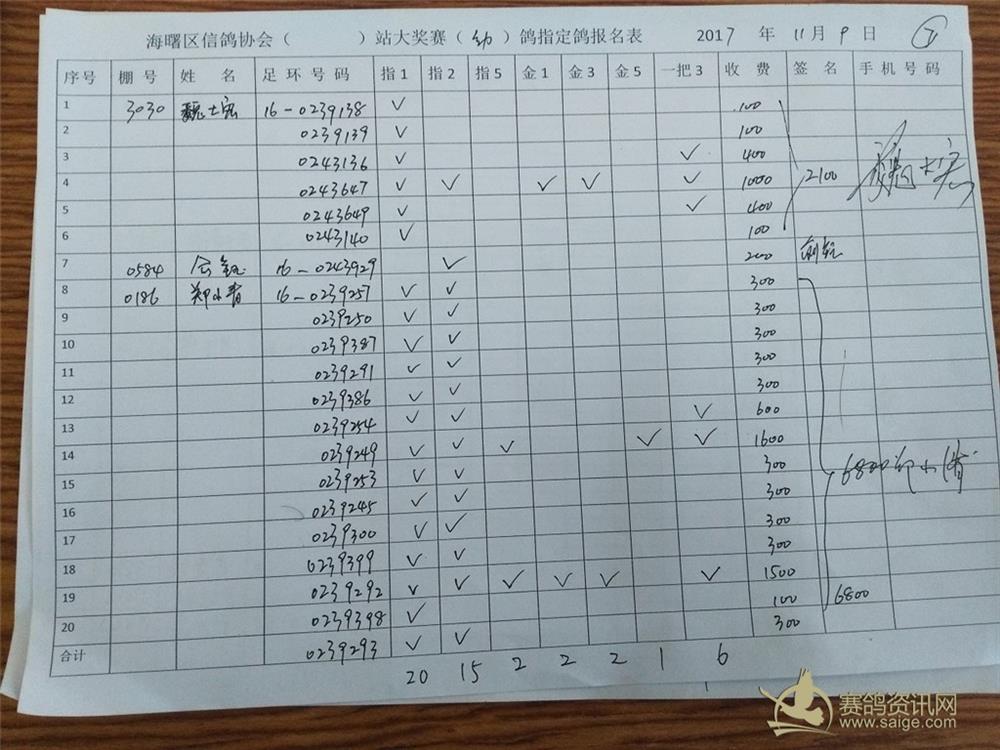 海曙区信鸽协会（ ）站大奖赛（幼）鸽指定鸽报名表 2017 年 11月 9 日
序号 棚号 姓名 足环号码 指1 指2 指5 金1 金3 金5 一把3 收费 签名 手机号码
1 3030 魏士宏 16-0239138 ✓ 100
2 0239139 ✓ 100
3 0243136 ✓ ✓ 400
4 0243647 ✓ ✓ ✓ ✓ ✓ 1000 2100 魏士宏
5 0243649 ✓ ✓ 400
6 0243140 ✓ 100
7 0584 16-0243929 ✓ 200
8 0186 郑小青 16-0239257 ✓ ✓ 300
9 0239250 ✓ ✓ 300
10 0239387 ✓ ✓ 300
11 0239291 ✓ ✓ 300
12 0239386 ✓ ✓ 300
13 0239254 ✓ ✓ ✓ 600
14 0239249 ✓ ✓ ✓ ✓ ✓ 1600
15 0239253 ✓ ✓ 300 6800 郑小青
16 0239245 ✓ ✓ 300
17 0239300 ✓ ✓ 300
18 0239399 ✓ ✓ 300
19 0239292 ✓ ✓ ✓ ✓ ✓ ✓ 1500
20 0239398 ✓ 100 6800
合计 0239293 ✓ ✓ 300
20 15 2 2 2 1 6
赛鸽资讯网
www.saige.com